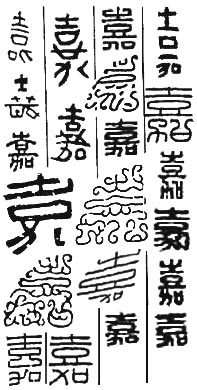 嘉嘉嘉嘉嘉嘉
嘉嘉嘉嘉嘉嘉
嘉嘉嘉
嘉嘉嘉嘉嘉嘉